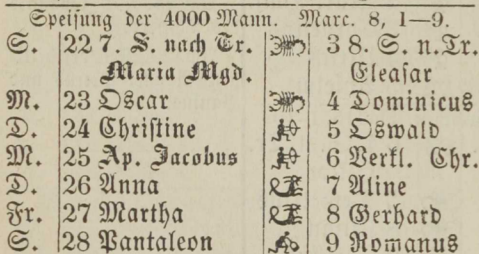 Speisung der 4000 Mann. Marc. 8, 1—9.
S. 22 7. S. nach Tr. 3 8. S. n. Tr.
Maria Mgd. Eleasar
M. 23 Oscar 4 Dominicus
D. 24 Christine 5 Oswald
M. 25 Ap. Jacobus 6 Verkl. Chr.
D. 26 Anna 7 Aline
Fr. 27 Martha 8 Gerhard
S. 28 Pantaleon 9 Romanus